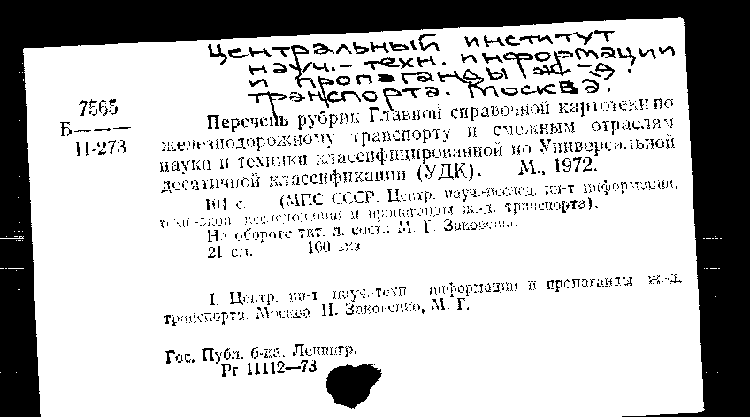 центральный институт
науч.-техн. информации
и пропаганды ж-д.
транспорта. Москва.
7565
Б
11-273
Перечень рубрик Главной справочной картотеки по
железнодорожному транспорту и смежным отраслям
науки и техники классифицированной по Универсальной
десятичной классификации (УДК). М., 1972.
104 с. (МПС СССР. Центр. науч.-исслед. ин-т информации,
и пропаганды ж.-д. транспорта).
На обороте тит. л. сост.: М. Г.
21 см. 160 экз
I. Центр. ин-т науч.-техн информации и пропаганды ж.-д.
транспорта. Москва II. М. Г.
Гос. Публ. б-ка. Ленингр.
Рг 11112—73